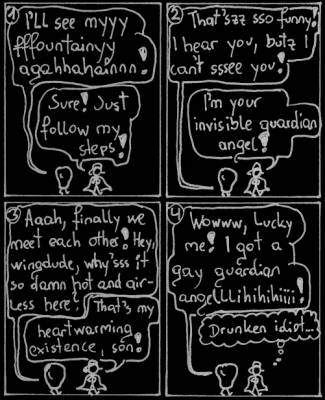 1
I'LL see myyy
fffountainyy
agahhahainnn!
Sure! Just
follow my
steps!
2
That'szz sso funny!
I hear you, butz I
can't sssee you!
I'm your
invisible guardian
angel!
3
Aaah, finally we
meet each other! Hey,
wingdude, why'sss it
so damn hot and air-
less here?
That's my
heartwarming
existence, son!
4
Wowww, Lucky
me! I got a
gay guardian
angelLLihihihiiii!
Drunken idiot...